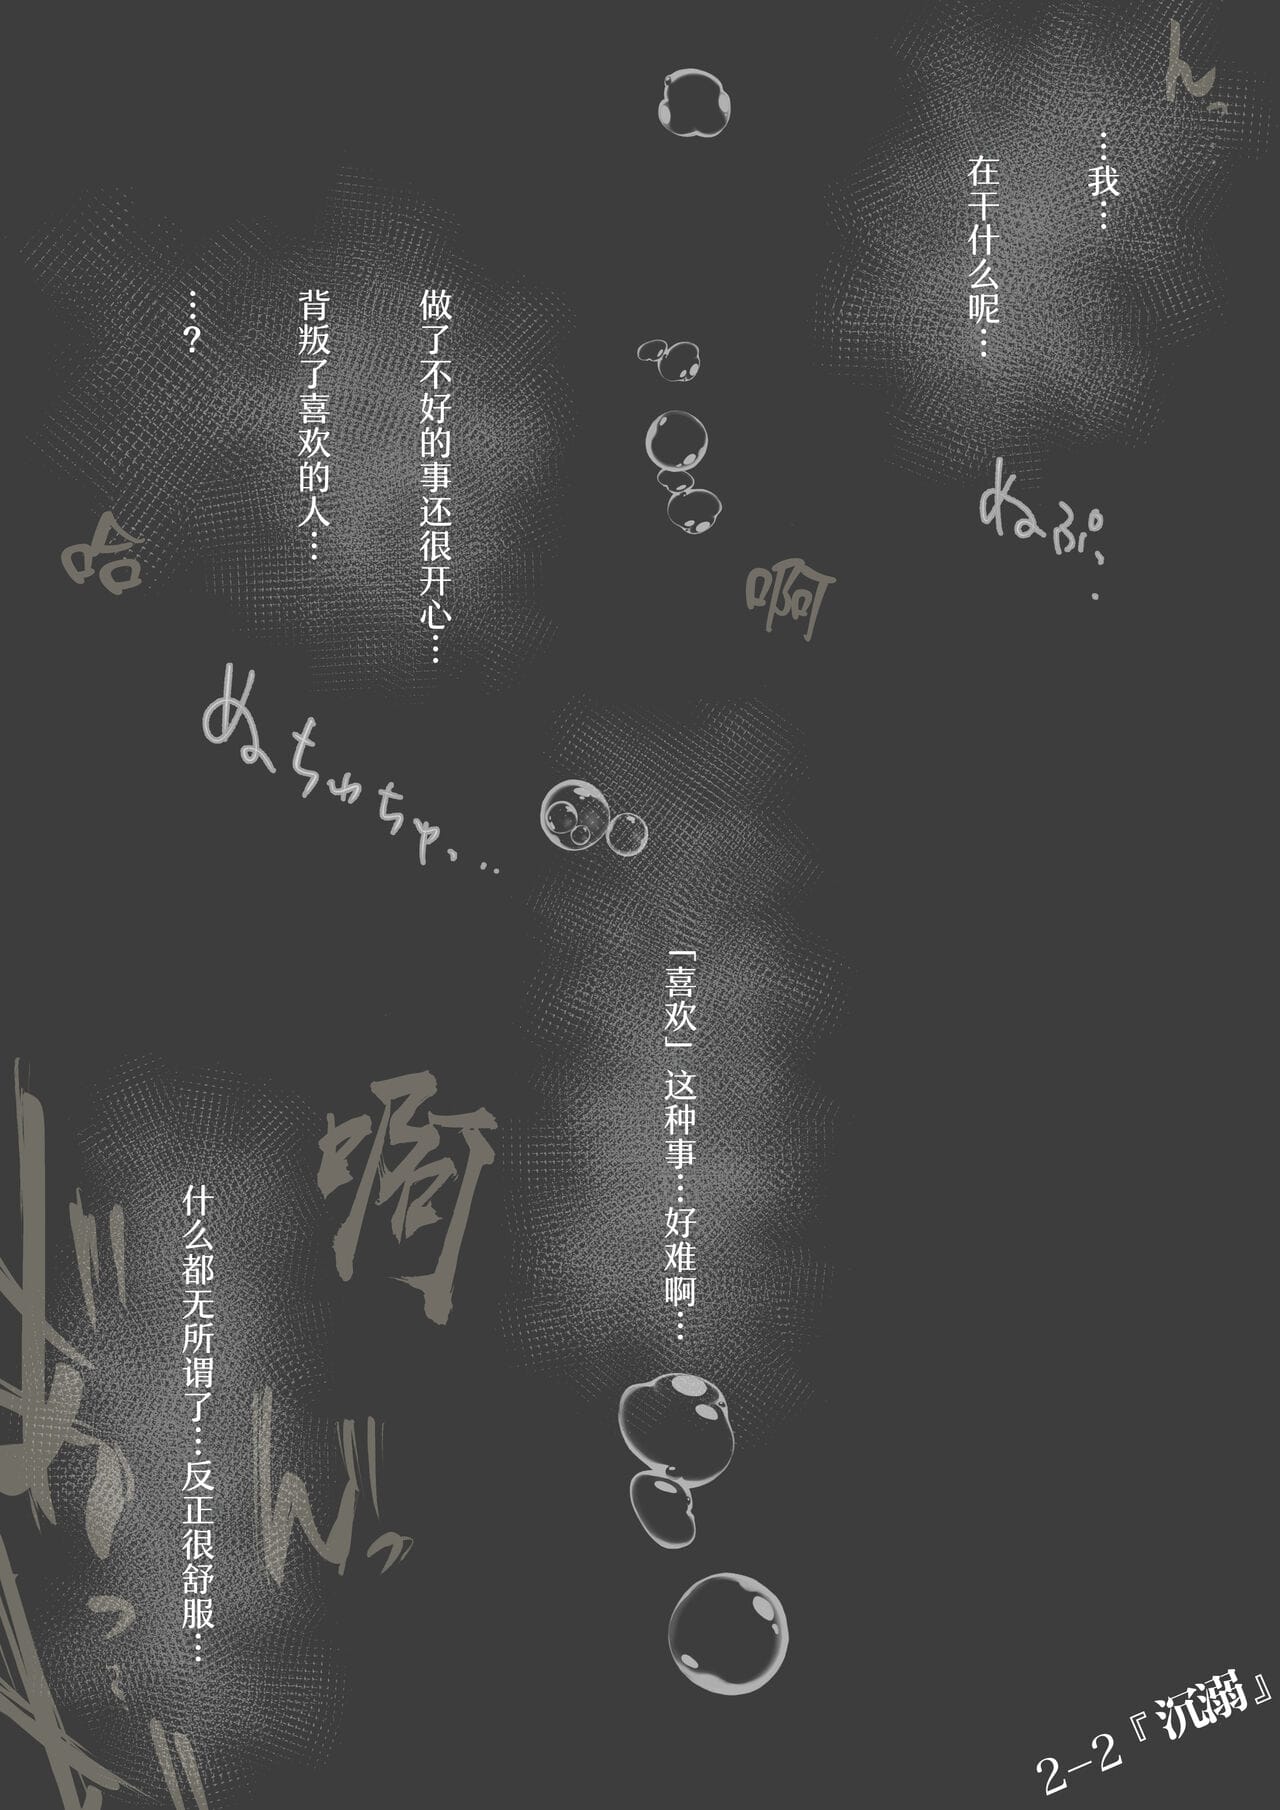 んっ
…我…
在干什么呢…
ぬぷ、
啊
做了不好的事还很开心…
背叛了喜欢的人…
…?
哈
ぬちゅちゃ、
「喜欢」这种事…好难啊…
啊
什么都无所谓了…反正很舒服…
2-2『沉溺』